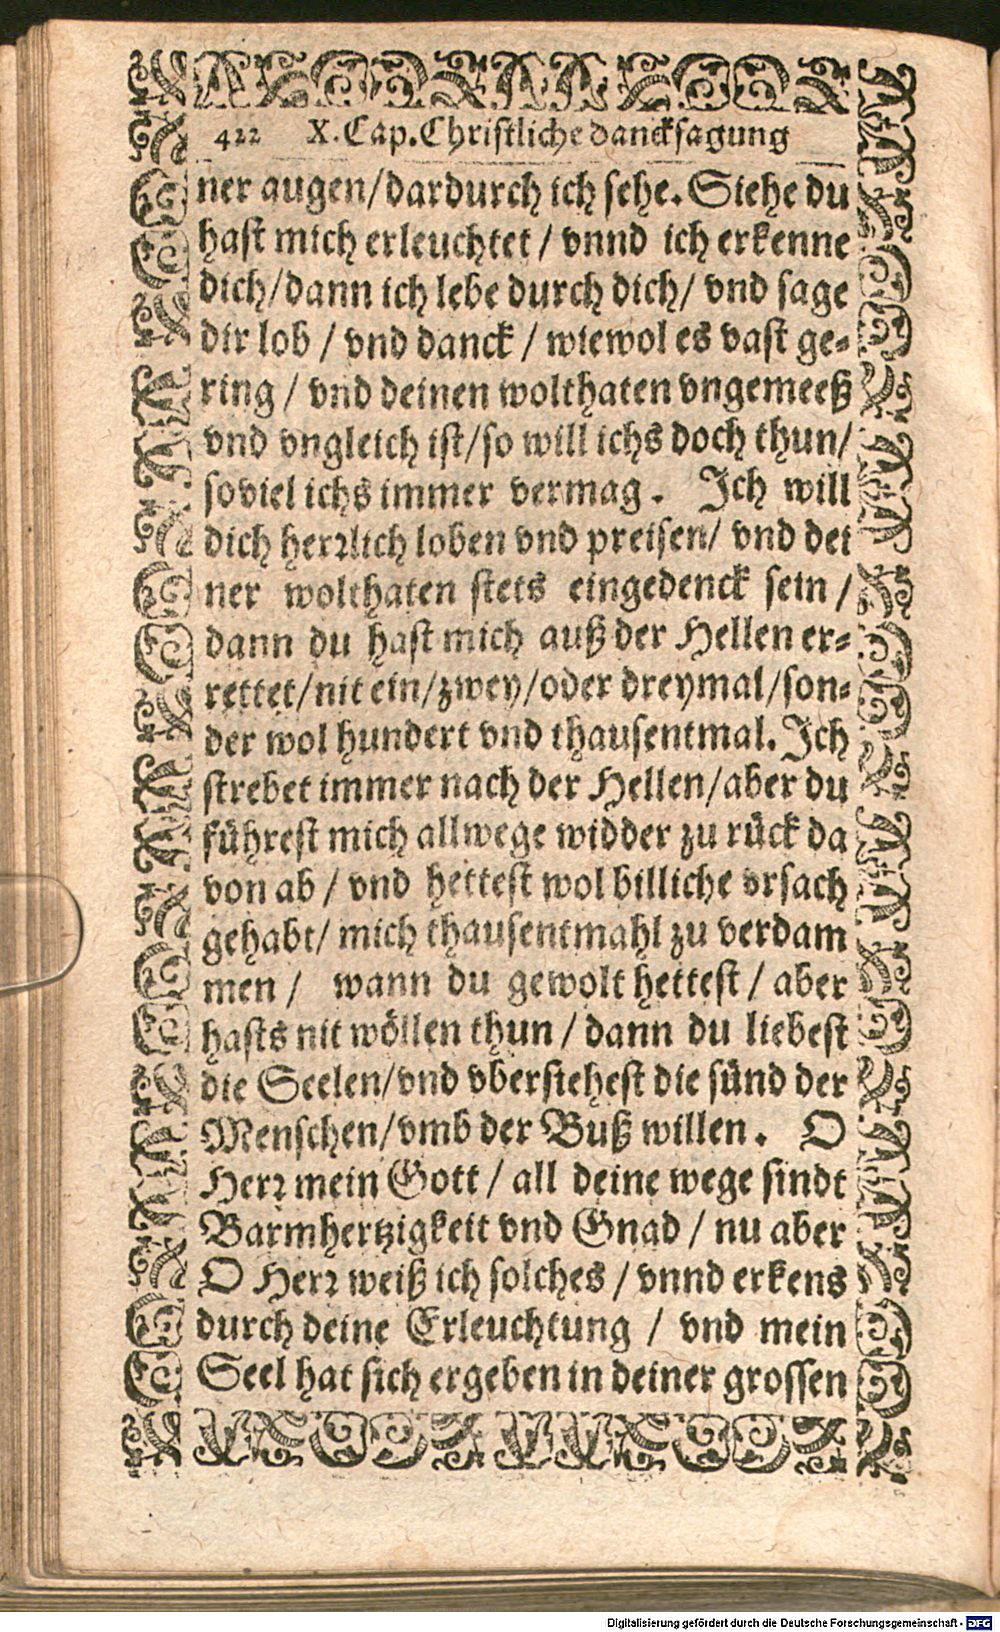 422 X. Cap. Christliche dancksagung
ner augen/dardurch ich sehe. Siehe du
hast mich erleuchtet / vnnd ich erkenne
dich/dann ich lebe durch dich/ vnd sage
dir lob / vnd danck / wiewol es vast ge-
ring / vnd deinen wolthaten vngemeeß
vnd vngleich ist/so will ichs doch thun/
soviel ichs immer vermag. Ich will
dich herrlich loben vnd preisen/ vnd dei
ner wolthaten stets eingedenck sein /
dann du hast mich auß der Hellen er-
rettet/nit ein/zwey/oder dreymal/son-
der wol hundert vnd thausentmal. Ich
strebet immer nach der Hellen/aber du
führest mich allwege widder zu rück da
von ab / vnd hettest wol billiche vrsach
gehabt/ mich thausentmahl zu verdam
men / wann du gewolt hettest / aber
hasts nit wöllen thun / dann du liebest
die Seelen/vnd vbersiehest die sünd der
Menschen/vmb der Buß willen. O
Herr mein Gott / all deine wege sindt
Barmhertzigkeit vnd Gnad / nu aber
O Herr weiß ich solches / vnnd erkens
durch deine Erleuchtung / vnd mein
Seel hat sich ergeben in deiner grossen
Digitalisierung gefördert durch die Deutsche Forschungsgemeinschaft - DFG